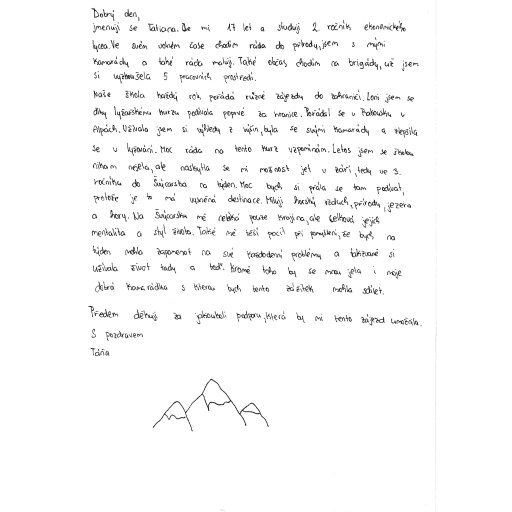 Dobrý den,
jmenuji se Tatiana. Je mi 17 let a studuji 2. ročník ekonomického
lycea. Ve svém volném čase chodím ráda do přírody, jsem s mými
kamarády a také ráda maluji. Také občas chodím na brigády, už jsem
si vyzkoušela 5 pracovních prostředí.
Naše škola každý rok pořádá různé zájezdy do zahraničí. Loni jsem se
díky lyžařskému kurzu podívala poprvé za hranice. Pořádal se v Rakousku v
Alpách. Užívala jsem si výhledy z výšin, byla se svými kamarády a zlepšila
se v lyžování. Moc ráda na tento kurz vzpomínám. Letos jsem se školou
nikam nejela, ale naskytla se mi možnost jet v září, tedy ve 3.
ročníku do Švýcarska na týden. Moc bych si přála se tam podívat,
protože je to má vysněná destinace. Miluji horský vzduch, přírodu, jezera
a hory. Na Švýcarsku mě neláká pouze krajina, ale celkově jejich
mentalita a styl života. Také mě těší pocit při pomyšlení, že bych na
týden mohla zapomenout na své každodenní problémy a takzvaně si
užívala život tady a teď. Kromě toho by se mnou jela i moje
dobrá kamarádka s kterou bych tento zážitek mohla sdílet.
Předem děkuji za jakoukoli podporu, která by mi tento zájezd umožnila.
S pozdravem
Táňa